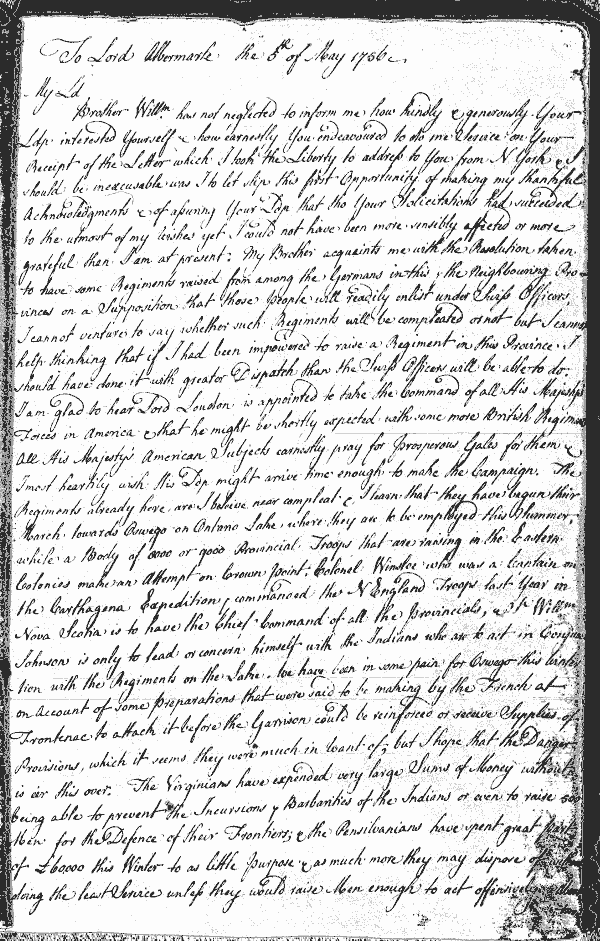 To Lord Albermarle the 5th of May 1756
My Ld
Brother Willm has not neglected to inform me how kindly & generously Your
Ldp interested Yourself & how earnestly You endeavoured to do me Service on Your
Receipt of the Letter which I took the Liberty to address to You from N York & I
should be inexcusable was I to let slip this first Opportunity of making my thankful
Acknowledgments & of assuring Your Ldp that tho Your Solicitations had succeeded
to the utmost of my wishes yet I could not have been more sensibly affected or more
grateful than I am at present: My Brother acquaints me with the Resolution taken
to have some Regiments raised from among the Germans in this & the Neighbouring Pro
vinces on a Supposition that those People will readily enlist under Swiss Officers,
I cannot venture to say whether such Regiments will be compleated or not but I cannot
help thinking that if I had been impowered to raise a Regiment in this Province I
should have done it with greater Dispatch than the Swiss Officers will be able to do;
I am glad to hear Lord Loudon is appointed to take the Command of all His Majestys
Forces in America & that he might be shortly expected with some more British Regiments
All His Majesty's American Subjects earnestly pray for prosperous Gales for them &
I most heartily wish His Ldp might arrive time enough to make the Campaign. The
Regiments already here are I believe near compleat & I learn that they have begun their
March towards Oswego on Ontario Lake, where they are to be employed this Summer,
while a Body of 8000 or 9000 Provincial Troops that are raising in the Eastern
Colonies make an Attempt on Crown Point; Colonel Winsloe who was a Captain in
the Carthagena Expedition, & commanded the N England Troops last Year in
Nova Scotia is to have the Chief Command of all the Provincials, & Sr Willm
Johnson is only to lead or concern himself with the Indians who are to act in Conjunc
tion with the Regiments on the Lake. we have been in some pain for Oswego this Winter
on Account of some Preparations that were said to be making by the French at
Frontenac to attack it before the Garrison could be reinforced or receive Supplies of
Provisions, which it seems they were much in want of; but I hope that the Danger
is over this over. The Virginians have expended very large Sums of Money without
being able to prevent the Incursions & Barbarities of the Indians or even to raise 500
Men for the Defence of their Frontiers; & the Pensilvanians have spent great
of £60000 this Winter to as little purpose & as much more they may dispose of
doing the least Service unless they would raise Men enough to act offensively